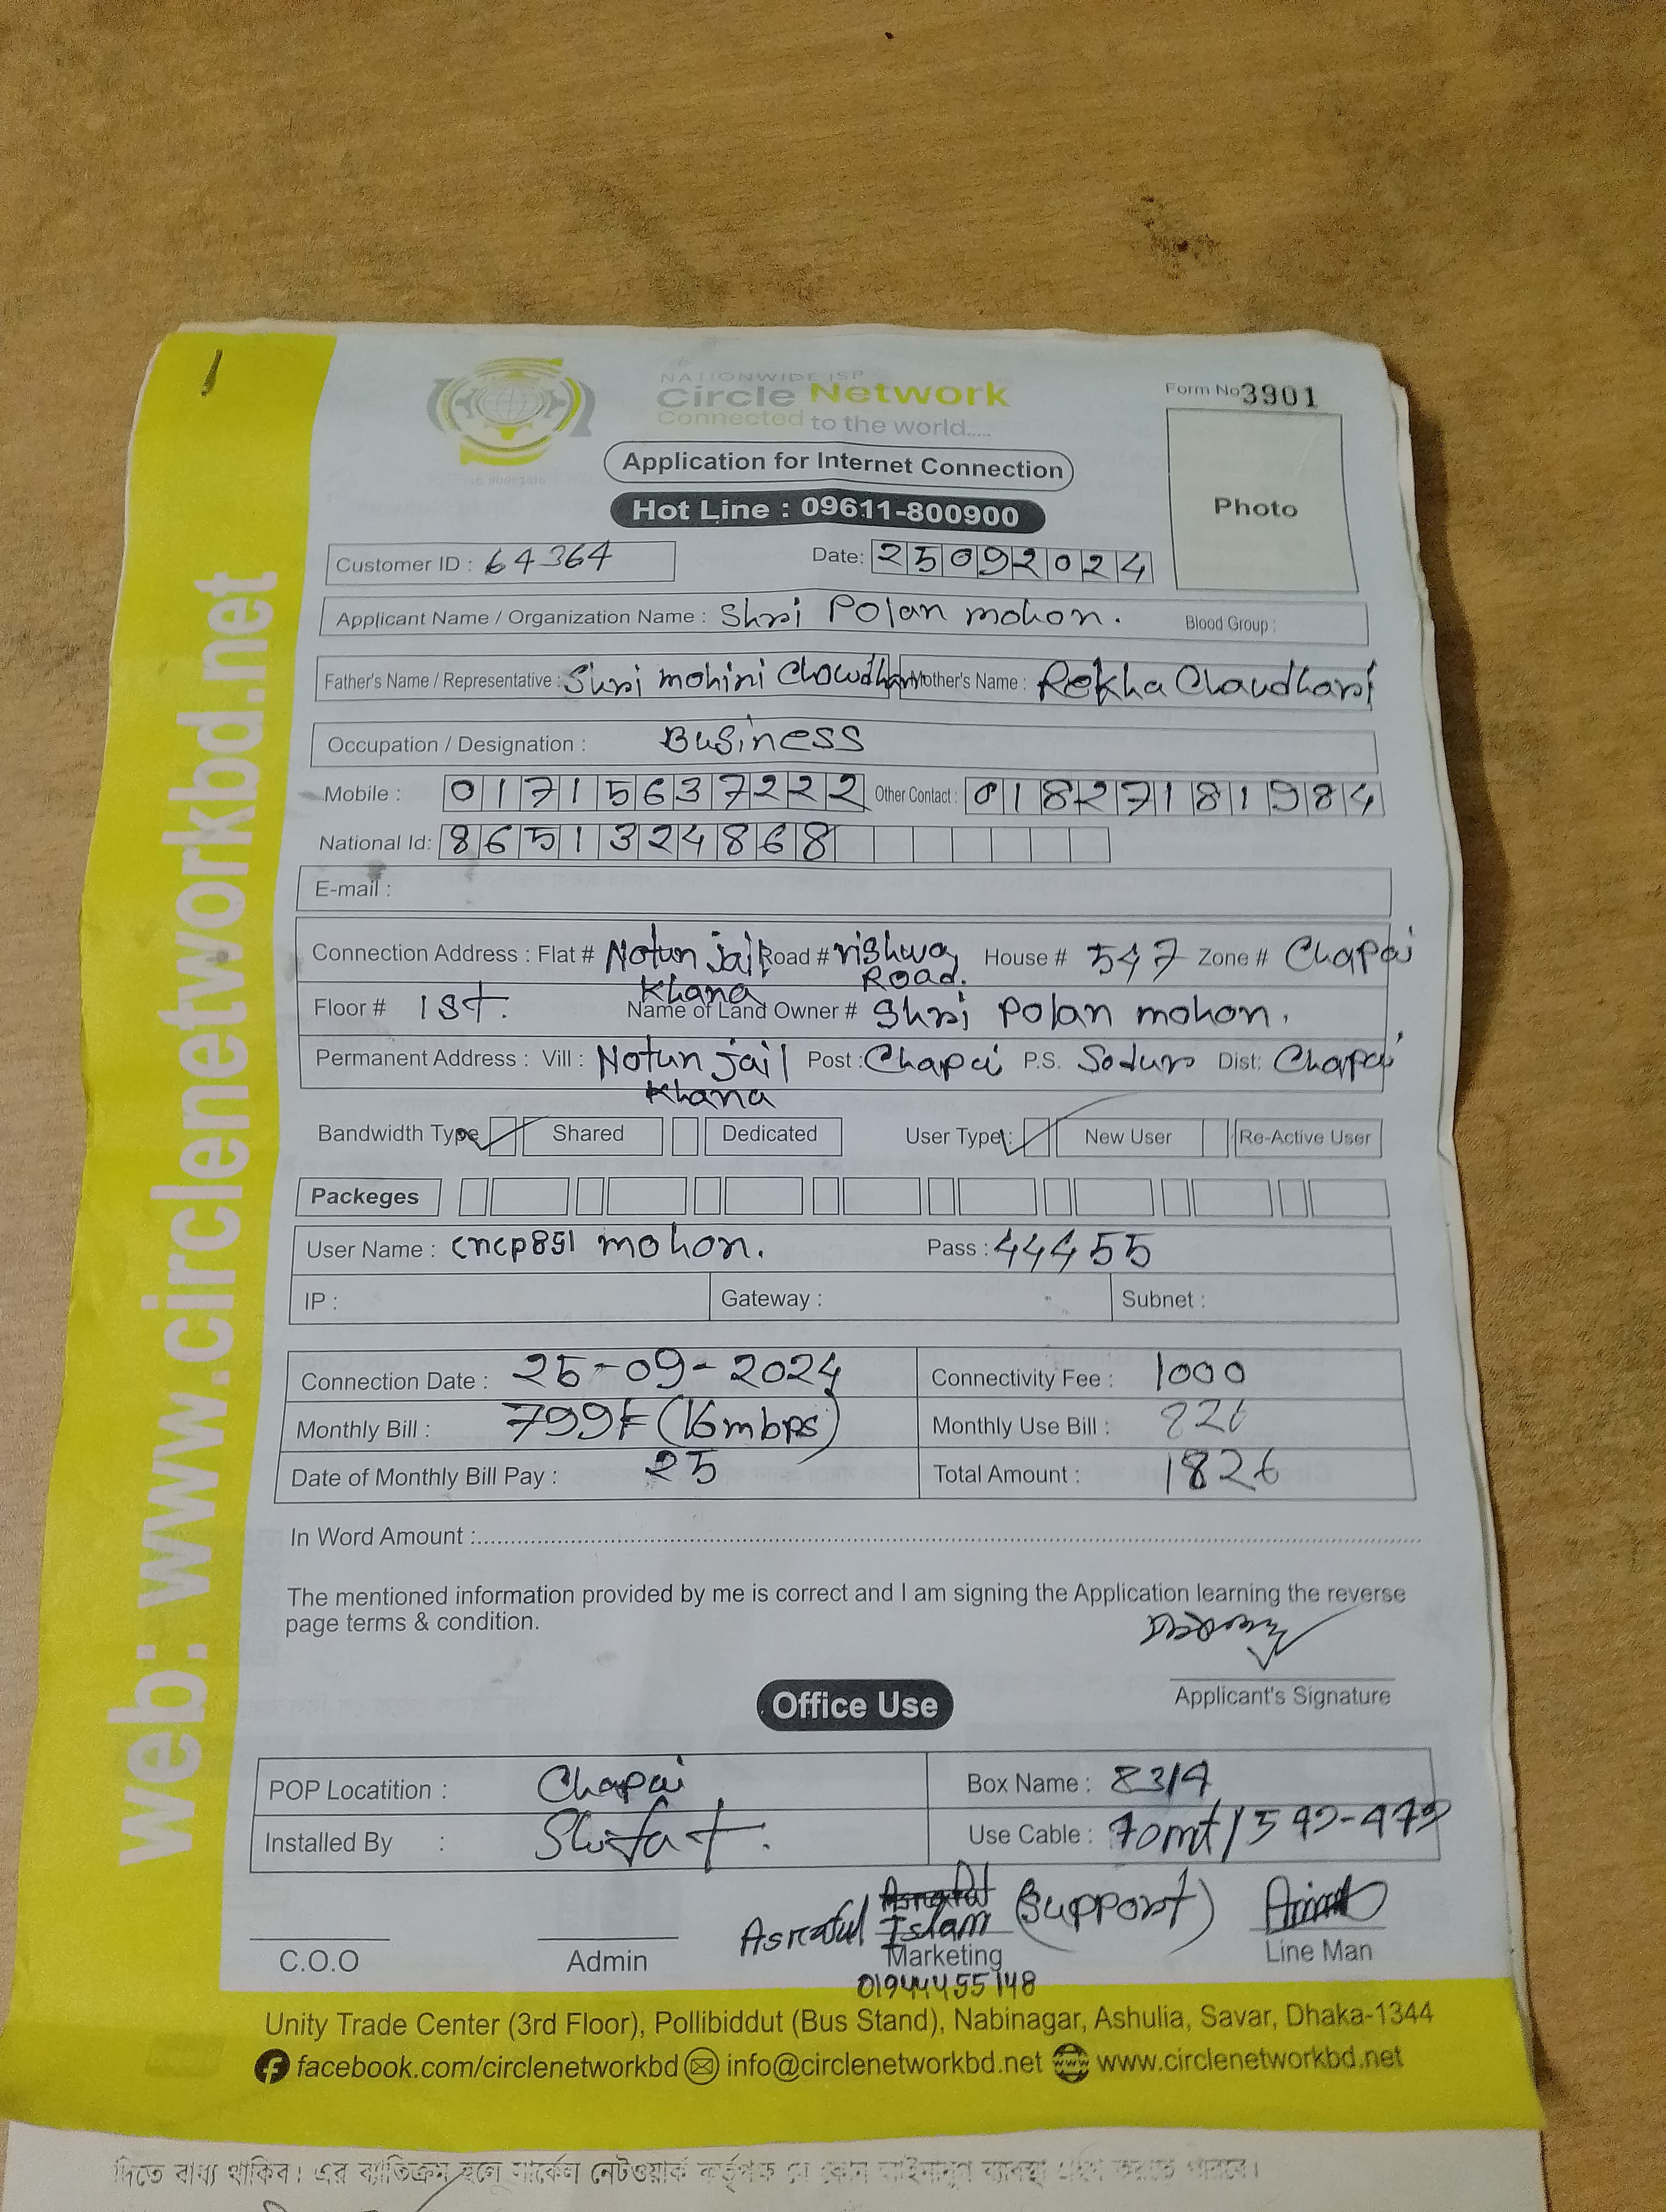 NATIONWIDE ISP
Circle Network
Connected to the world.....
Form No 3901
Application for Internet Connection
Photo
Hot Line : 09611-800900
Customer ID : 64364 Date: 25092024
Applicant Name / Organization Name : Shri Polan mohon. Blood Group :
Father's Name / Representative : Shri mohini Chowdhary Mother's Name : Rekha Chaudhari
Occupation / Designation : Business
Mobile : 01715637222 Other Contact : 01827181984
National Id: 8651324868
E-mail :
Connection Address : Flat # Notun jail Khana Road # vishwa Road. House # 547 Zone # Chapai
Floor # 1st. Name of Land Owner # Shri Polan mohon.
Permanent Address : Vill : Notun jail Khana Post : Chapai P.S. Sodur Dist: Chapai
Bandwidth Type Shared Dedicated User Type : New User Re-Active User
Packeges
User Name : cncp851 mohon. Pass : 44455
IP : Gateway : Subnet :
Connection Date : 25-09-2024 Connectivity Fee : 1000
Monthly Bill : 799৳ (16mbps) Monthly Use Bill : 826
Date of Monthly Bill Pay : 25 Total Amount : 1826
In Word Amount :
The mentioned information provided by me is correct and I am signing the Application learning the reverse
page terms & condition.
Applicant's Signature
Office Use
POP Locatition : Chapai Box Name : 8314
Installed By : Shifat. Use Cable : 70mt/549-479
Asraful Islam (Support)
C.O.O Admin Marketing Line Man
01944455148
Unity Trade Center (3rd Floor), Pollibiddut (Bus Stand), Nabinagar, Ashulia, Savar, Dhaka-1344
facebook.com/circlenetworkbd info@circlenetworkbd.net www.circlenetworkbd.net
web: www.circlenetworkbd.net
দিতে বাধ্য থাকিব। এর ব্যতিক্রম হলে সার্কেল নেটওয়ার্ক কর্তৃপক্ষ যে কোন আইনানুগ ব্যবস্থা গ্রহণ করতে পারবে।